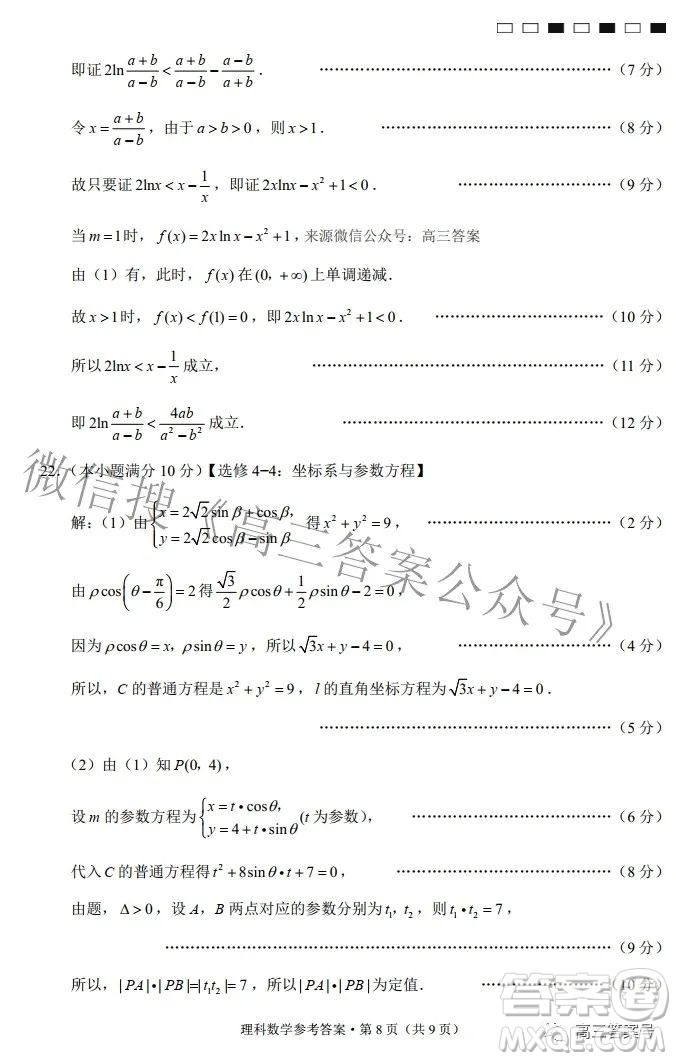 即证2ln\frac{a+b}{a-b}<\frac{a+b}{a-b}-\frac{a-b}{a+b}. ……………………（7 分）
令x=\frac{a+b}{a-b}，由于a>b>0，则x>1. ……………………（8 分）
故只要证2lnx<x-\frac{1}{x}，即证2xlnx-x²+1<0. ……………………（9 分）
当m=1时，f(x)=2xlnx-x²+1，来源微信公众号：高三答案
由（1）有，此时，f(x)在(0，+∞)上单调递减.
故x>1时，f(x)<f(1)=0，即2xlnx-x²+1<0. ……………………（10 分）
所以2lnx<x-\frac{1}{x}成立， ……………………（11 分）
即2ln\frac{a+b}{a-b}<\frac{4ab}{a²-b²}成立. ……………………（12 分）
22.（本小题满分 10 分）【选修 4-4：坐标系与参数方程】
解：（1）由{x=2√2sinβ+cosβ，y=2√2cosβ-sinβ 得x²+y²=9， ……………………（2 分）
由ρcos(θ-\frac{π}{6})=2得\frac{√3}{2}ρcosθ+\frac{1}{2}ρsinθ-2=0，
因为ρcosθ=x，ρsinθ=y，所以√3x+y-4=0， ……………………（4 分）
所以，C 的普通方程是x²+y²=9，l 的直角坐标方程为√3x+y-4=0.
……………………（5 分）
（2）由（1）知P(0，4)，
设m 的参数方程为{x=t•cosθ，y=4+t•sinθ (t 为参数)， ……………………（6 分）
代入C 的普通方程得t²+8sinθ•t+7=0， ……………………（8 分）
由题，Δ>0，设A，B 两点对应的参数分别为t₁，t₂，则t₁•t₂=7，
……………………（9 分）
所以，|PA|•|PB|=|t₁t₂|=7，所以|PA|•|PB|为定值. ……………………（10 分）
理科数学参考答案·第 8 页（共 9 页）
微信搜《高三答案公众号》
答案圈
高三答案号
MXQE.COM